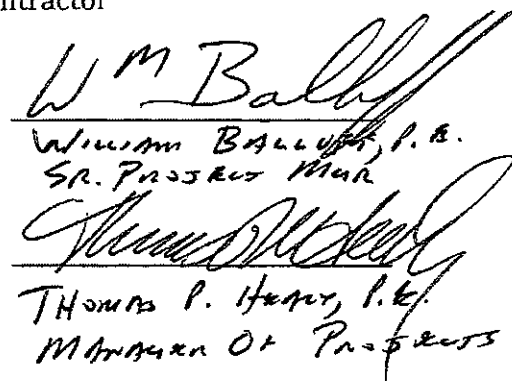 ntractor
Wm Balluff
WILLIAM BALLUFF, P.E.
SR. PROJECT MGR
THOMAS P. HEALY, P.E.
MANAGER OF PROJECTS